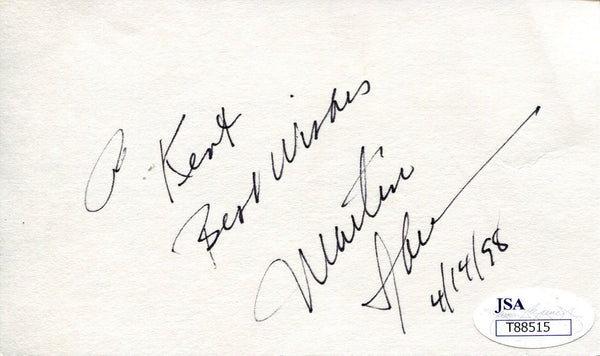 Kent
Best Wishes
Martin
4/14/98
JSA
T88515